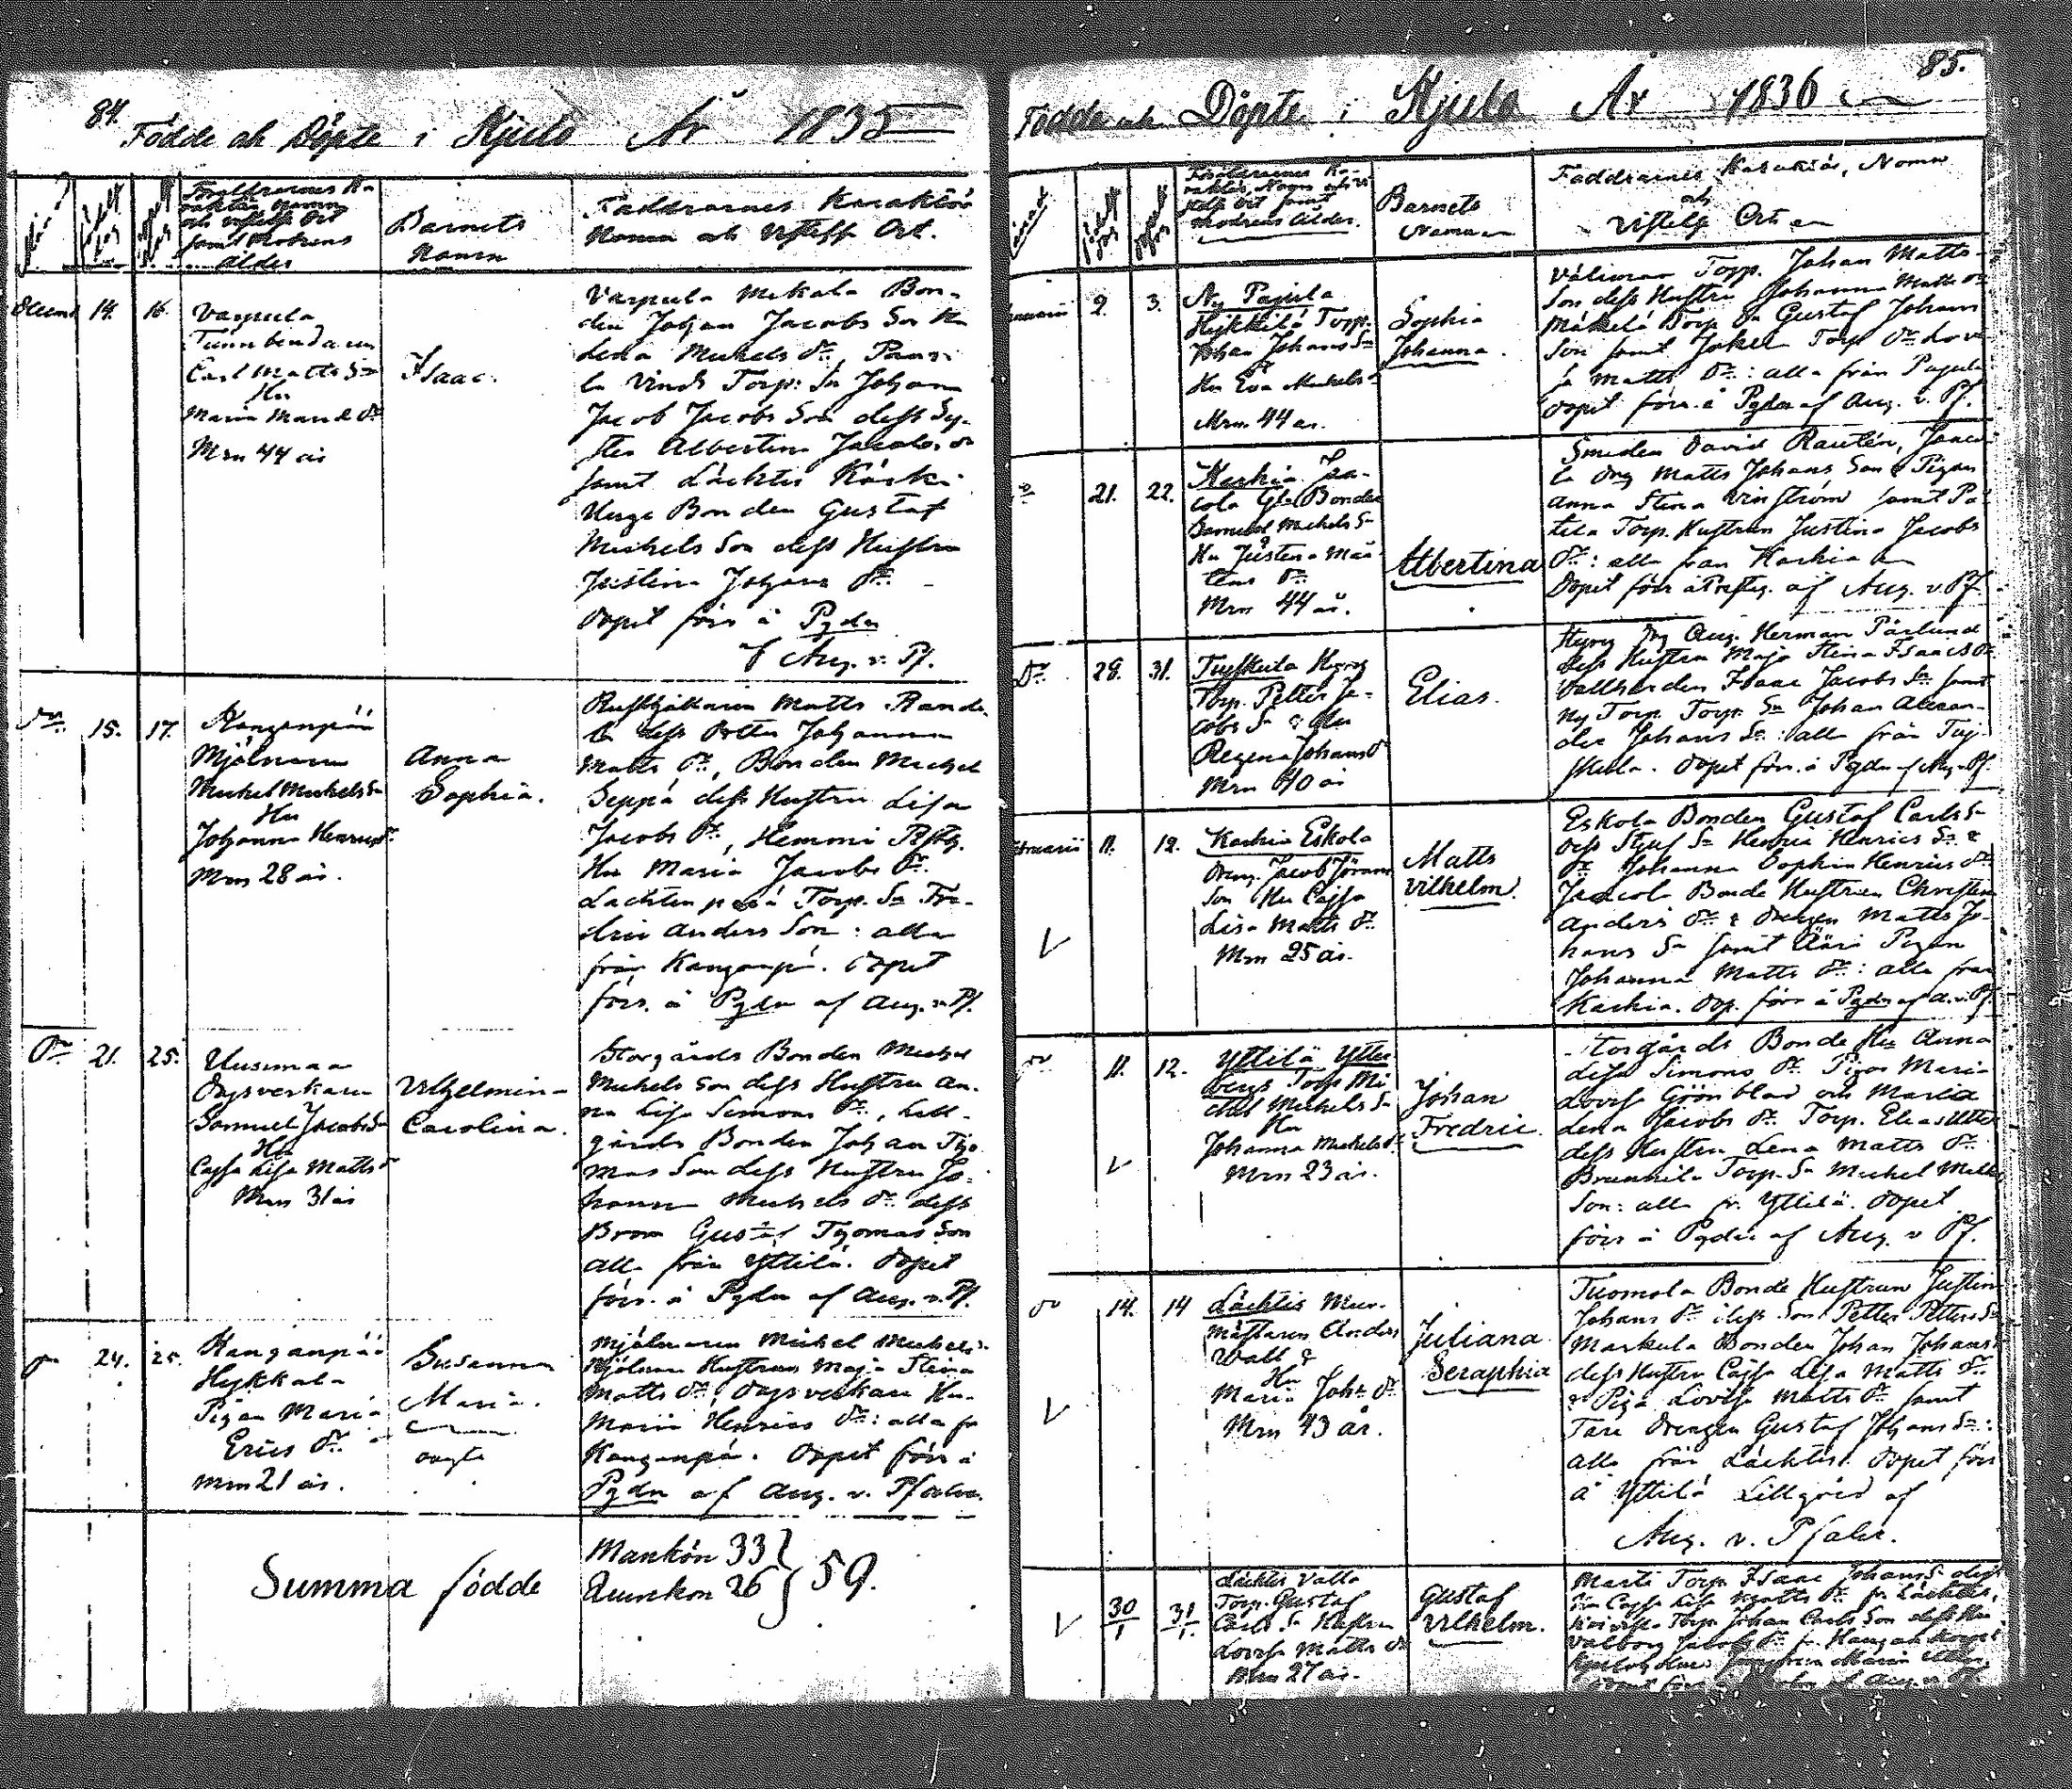 84.
Födde och Döpte i Kjulo År 1835
Barnets
Namn
Faddrarnes Karaktär
Namn och Vistelse Ort.
Ålder
14. 16.
Varpula
Tunnbindaren
Carl Matts Sn
Hu
Maria Mand Dr
Mrn 44 år
Isaac.
Varpula Mikola Bon-
den Johan Jacobs Son Hu
Lena Michels Dr,
Vinds Torp: Sn Johan
Jacob Jacobs Son dess Sy-
ster Albertina Jacobs Dr
samt Lächtis Käski
Bonden Gustaf
Michels Son dess Hustru
Justina Johans Dr:
Dopet förr. å Pgdn
af Aug. v. Pf.
15. 17.
Kanganpää
Mjölnaren
Michel Michels Sn
Hu
Johanna Henrics Dr
Mrn 28 år.
Anna
Sophia.
Rusthållaren Matts Rande-
la dess Dotter Johanna
Matts Dr, Bonden Michel
Seppä dess Hustru Lisa
Jacobs Dr, Hemmi
Hu Maria Jacobs Dr.
Lachtenperä Torp. Sn Fre-
dric Anders Son: alla
från Kanganpä. Dopet
förr. å Pgdn af Aug. v. Pf.
Dr 21. 25.
Uusimaa
Dagsverkaren
Samuel Jacobs Sn
Hu
Cajsa Lisa Matts Dr
Mrn 31 år
Vilhelmina
Carolina.
Storgårds Bonden Michel
Michels Son dess Hustru An-
na Lisa Simons Dr, Lill-
gårds Bonden Johan Tho-
mas Son dess Hustru Jo-
hanna Michels Dr dess
Bror Gustaf Thomas Son
alla från Yttilä. Dopet
förr. å Pgdn af Aug. v. Pf.
24. 25.
Kanganpää
Hykkala
Pigan Maria
Erics Dr
Mrn 21 år.
Susanna
Maria.
oägta
Mjölnaren Michel Michels
Mjölnare Hustrun Maja Stina
Matts Dr, Dagsverkare Hu
Maria Henrics Dr: alla fr
Kanganpä. Dopet förr å
Pgdn af Aug. v. Pfaler.
Summa födde
Mankön 33
Qvinkön 26
59.
85.
Födde och Döpte i Kjulo År 1836
Barnets
Namn
Faddrarnes Karaktär, Namn
och
Vistelse Ort
2. 3.
Ny Pajula
Heikkilä Torp.
Johan Johans Sn
Hu Eva Michels
Mrn 44 år.
Sophia
Johanna.
Torp. Johan Matts
Son dess Hustru Johanna Matts Dr
Mäkelä Torp Sn Gustaf Johans
Son samt Torp Dr Lovi-
sa Matts Dr: alla från Pajula
Dopet förr. å Pgdn af Aug. v. Pf.
21. 22.
Karhia Jaa-
cola Bonden
Samuel Michels Sn
Hu Justina Mår-
tens Dr
Mrn 44 år.
Albertina
Smeden David Rautén, Jaaco-
la Dreng Matts Johans Son & Pigan
Anna Stina Vinström samt Pa-
tila Torp. Hustrun Justina Jacobs
Dr: alla från Karhia
Dopet förr af Aug. v. Pf
Dr. 28. 31.
Tuiskula
Torp. Petter Ja-
cobs Sn & Hu
Regina Johans Dr
Mrn 40 år
Elias.
Aug. Herman Pärlund
dess Hustru Maja Stina Isaacs Dr
Vallherden Isaac Jacobs Sn samt
Ny Torp. Torp. Sn Johan Alexan-
der Johans Sn: alla från Tui-
skula. Dopet förr. å Pgdn af Aug v Pf.
11. 12.
Karhia Eskola
Dreng. Jacob Jörans
Son Hu Cajsa
Lisa Matts Dr
Mrn 25 år.
Matts
Vilhelm.
Eskola Bonden Gustaf Carls Sn
dess Styf Sn Henric Henrics Sn &
Dr Johanna Sophia Henrics Dr
Jaacola Bonde Hustrun Christina
Anders Dr & Drengen Matts Jo-
hans Sn samt Pigan
Johanna Matts Dr: alla från
Karhia. Dop. förr å Pgdn af A. v. Pf.
11. 12.
Yttilä Ytter
bergs Torp Mi-
chel Michels Sn
Hu
Johanna Michels Dr
Mrn 23 år.
Johan
Fredric.
Storgårds Bonde Hu Anna
Lisa Simons Dr Pigor Maria
Lovisa Grönblad och Maria
Lena Jacobs Dr. Torp. Elias
dess Hustru Lena Matts Dr
Torp. Sn Michel Michels
Son: alla fr. Yttilä. Dopet
förr å Pgdn af Aug. v Pf.
14. 14
Lächtis Mur-
mästaren Anders
Wall &
Hu
Maria Joh. Dr
Mrn 43 år.
Juliana
Seraphia
Tuomola Bonde Hustrun Justina
Johans Dr dess Son Petter Petters Sn
Markula Bonden Johan Johans
dess Hustru Cajsa Lisa Matts Dr
& Piga Lovisa Matts Dr samt
Tare Drengen Gustaf Johans Sn:
alla från Lächtis. Dopet förr
å Yttilä Lillgård af
Aug. v. Pfaler.
30/1 31/1
Lächtis Valla
Torp. Gustaf
Carls Sn Hustru
Lovisa Matts Dr
Mrn 27 år.
Gustaf
Vilhelm.
Marti Torp. Isaac Johans Sn dess
Hu Cajsa Lisa Matts Dr fr. Lächtis,
Torp. Johan Carls Son dess Hu
Valborg Jacobs Dr fr.